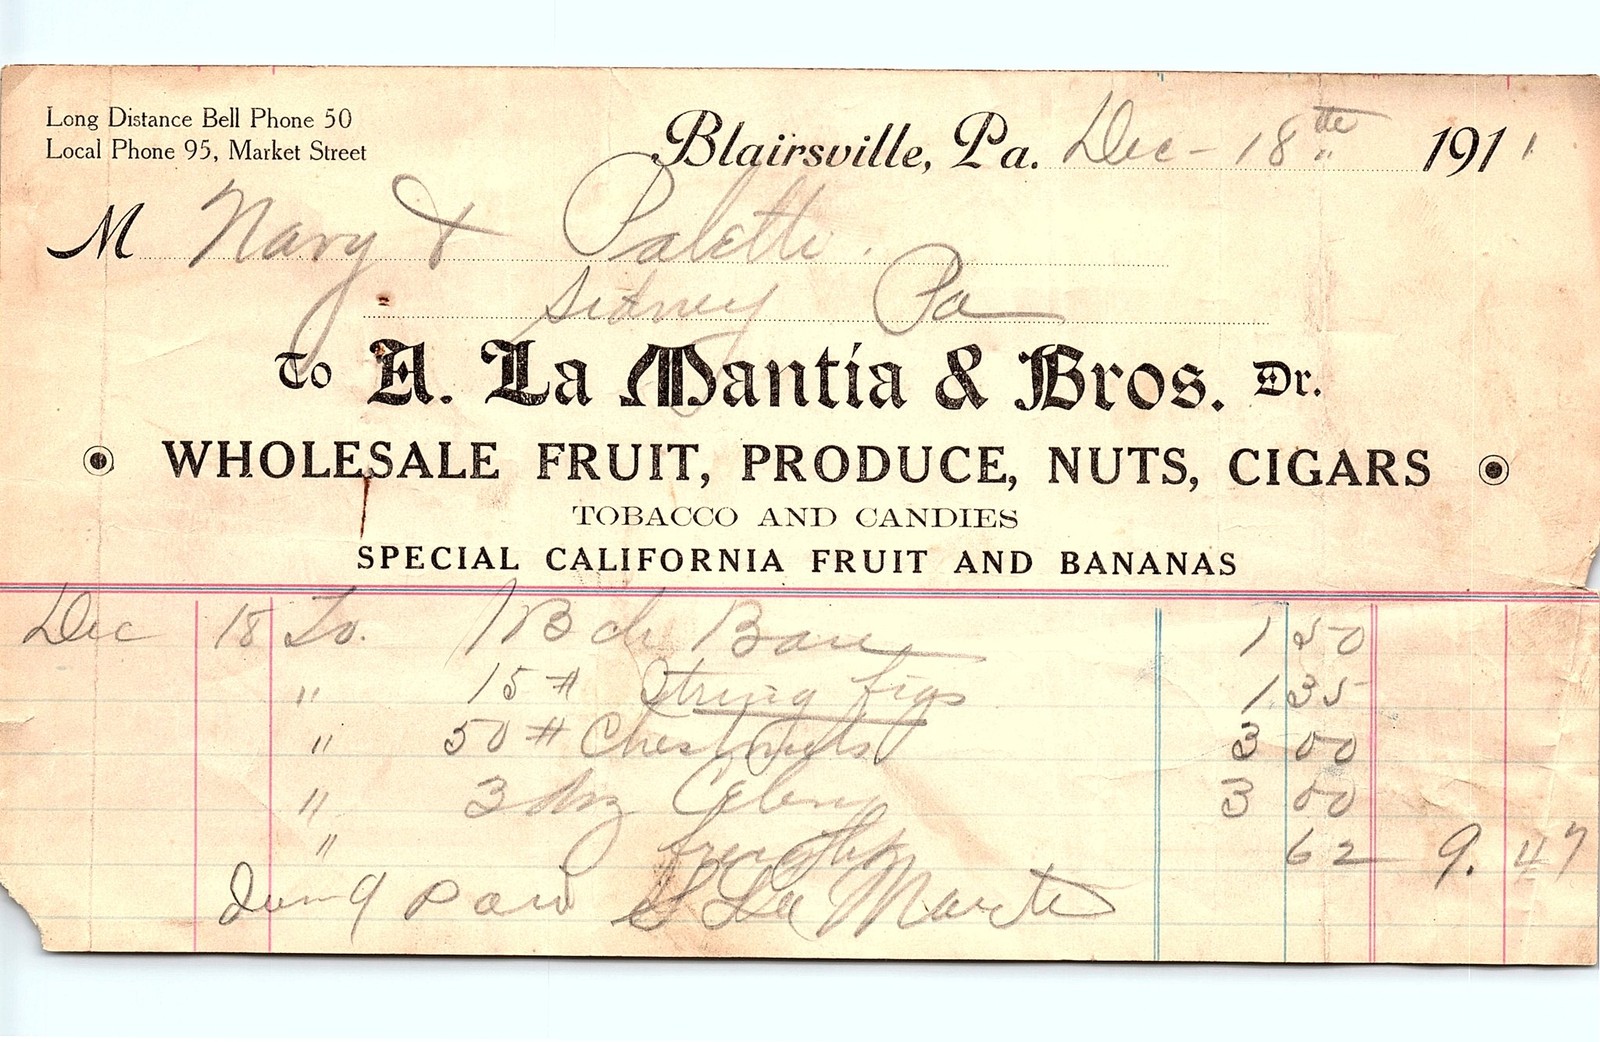 Long Distance Bell Phone 50
Local Phone 95, Market Street
Blairsville, Pa. Dec - 18th 1911
M Navy & Palette.
Sidney Pa
To A. La Mantia & Bros. Dr.
WHOLESALE FRUIT, PRODUCE, NUTS, CIGARS
TOBACCO AND CANDIES
SPECIAL CALIFORNIA FRUIT AND BANANAS
Dec 18 To. 1 B ch 1 50
" 15 # String figs 1 35
" 50 # Chestnuts 3 00
" 3 Celery 3 00
" 62 9.47
La Mantia